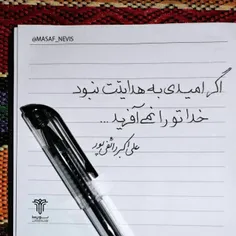 @MASAF_NEVIS
اگر امیدی به هدایتت نبود
خدا تو را نمی‌آفرید...
علی اکبر رائفی پور